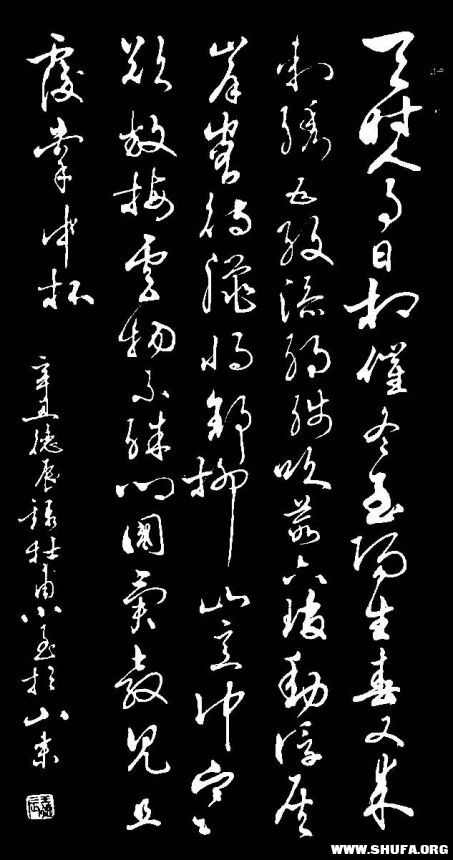 天時人事日相催冬至陽生春又來
刺繡五紋添弱線吹葭六琯動浮灰
岸容待臘將舒柳山意沖寒
欲放梅雲物不殊鄉國異教兒且
覆掌中杯
辛丑德辰錄杜甫小至於山東
WWW.SHUFA.ORG